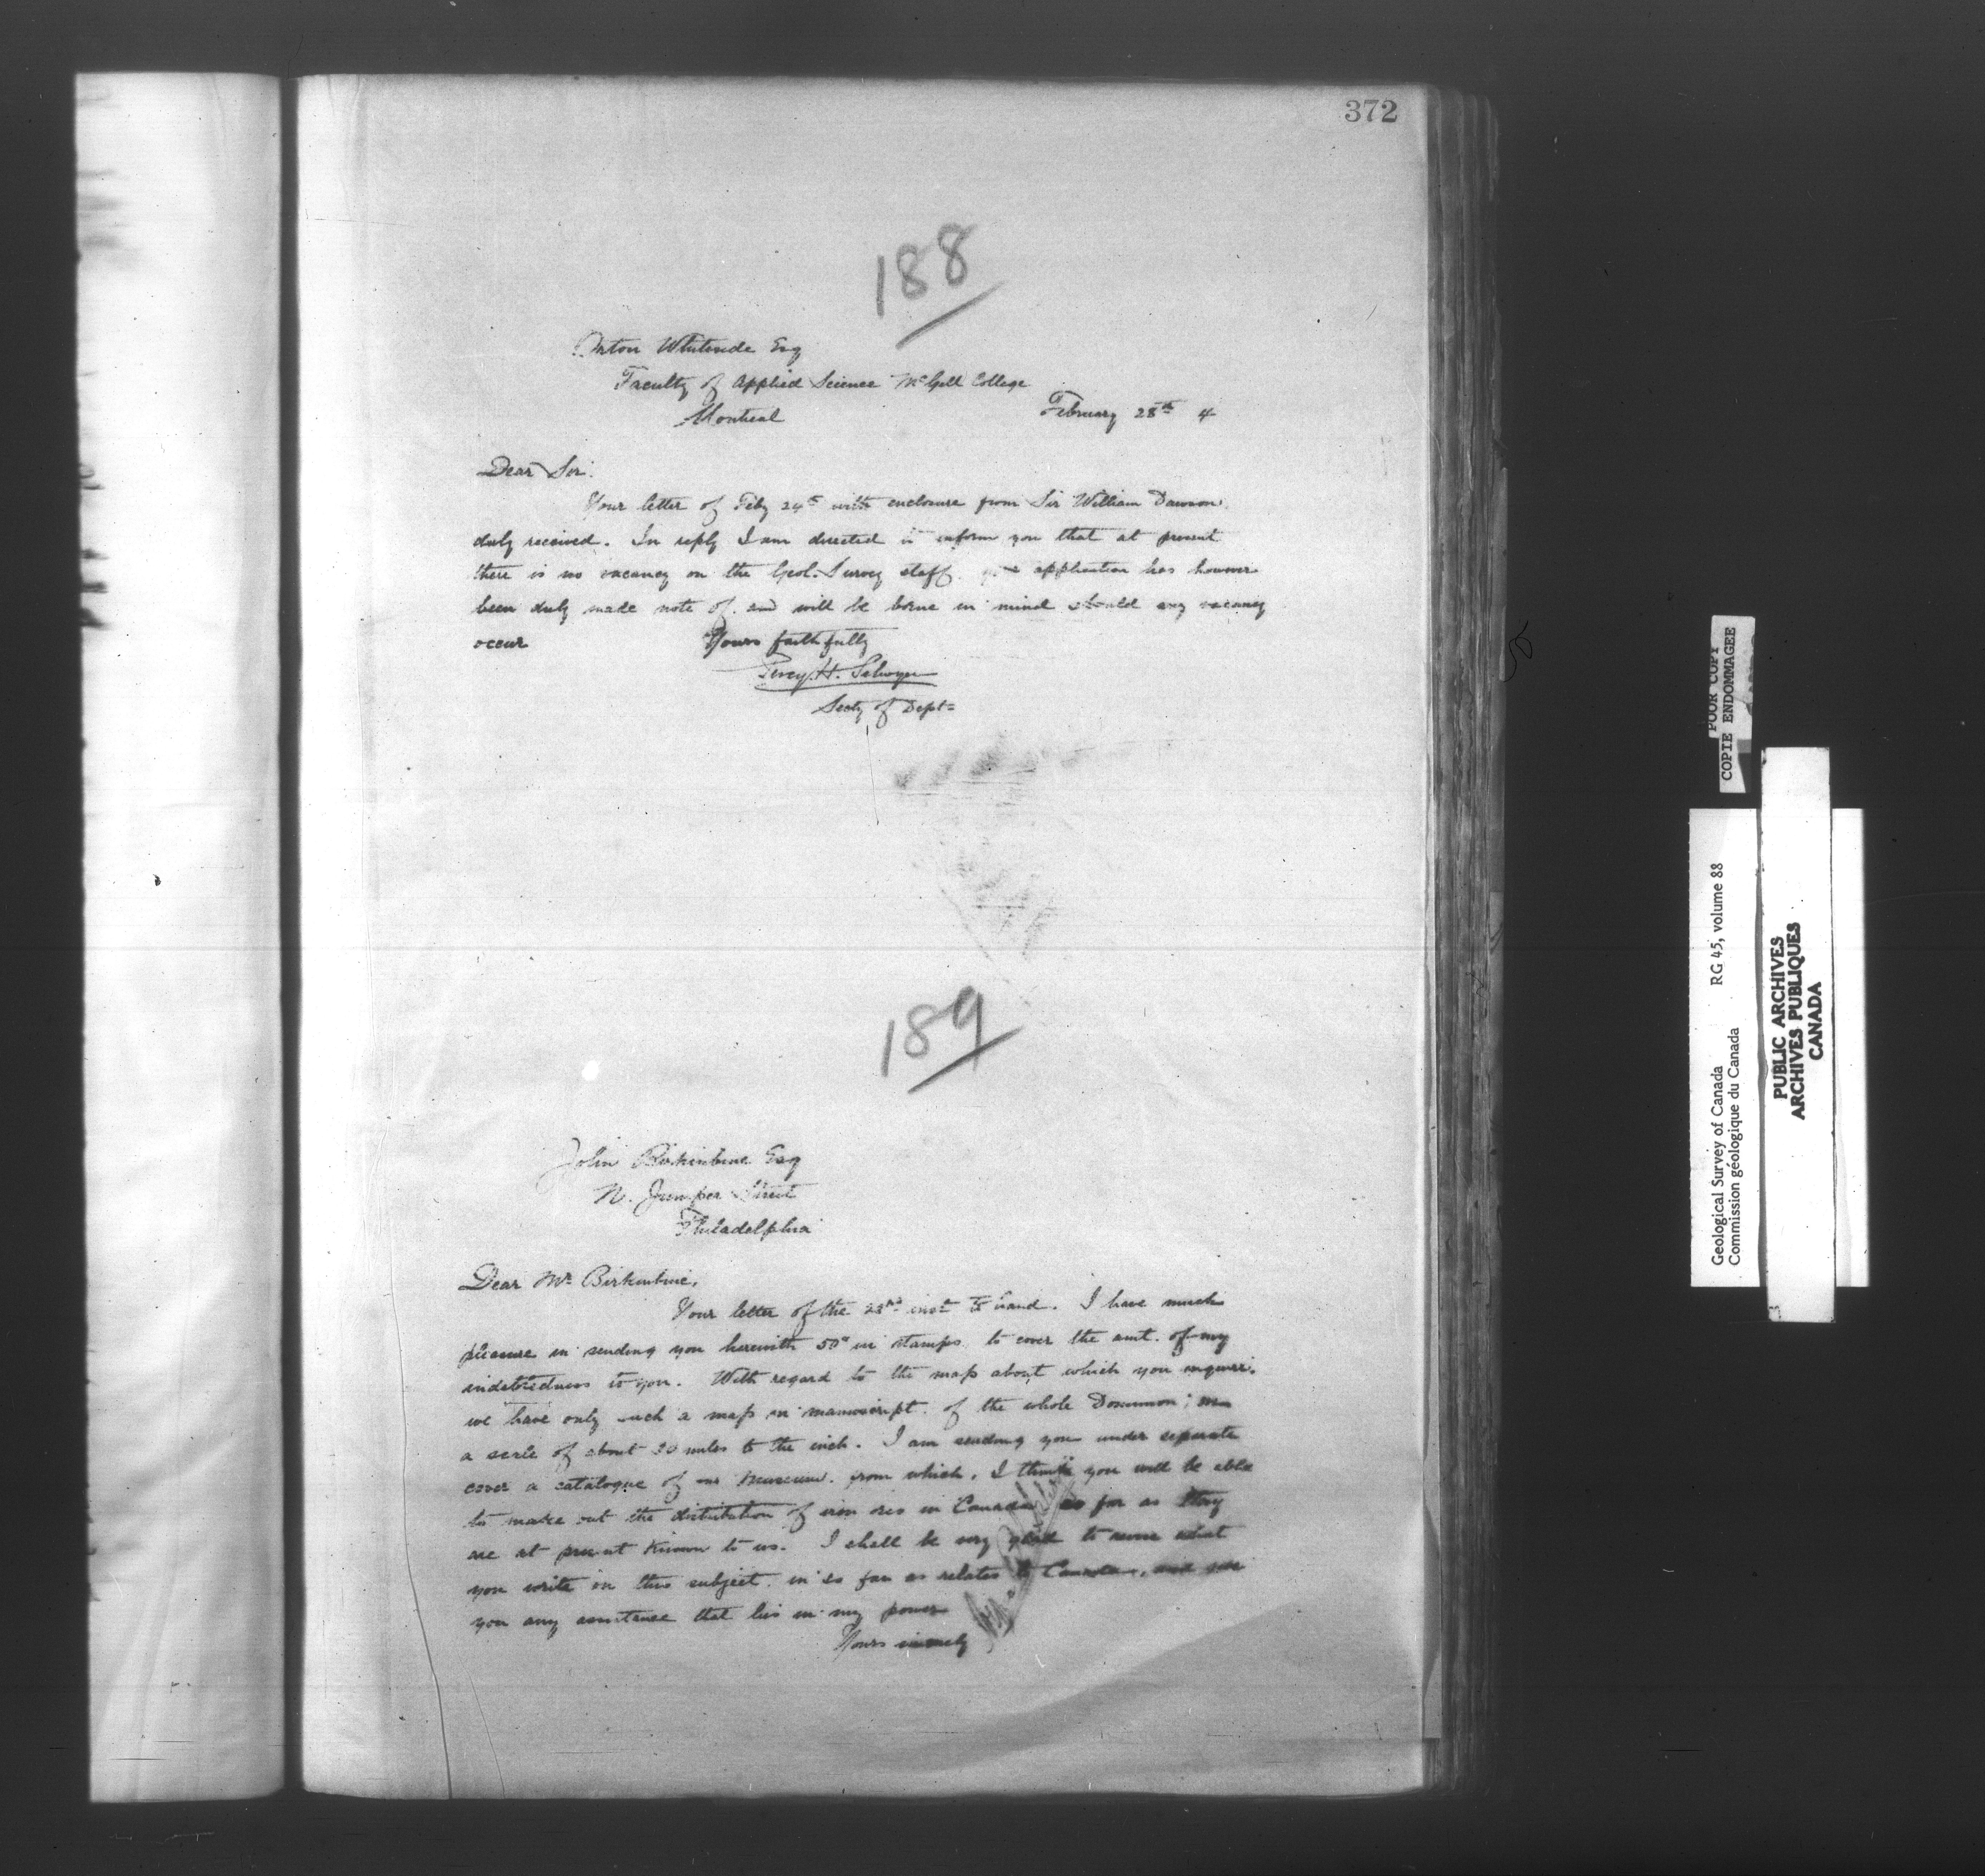 372
188
Orton Whiteside Esq
Faculty of Applied Science McGill College
Montreal February 28th 4
Dear Sir.
Your letter of Feby 24th with enclosure from Sir William Dawson
duly received. In reply I am directed to inform you that at present
there is no vacancy on the Geol. Survey staff. your application has however
been duly made note of. and will be borne in mind should any vacancy
occur Yours faithfully
Percy. H. Selwyn
Secty of Dept=
189
John Birkinbine Esq
N. Juniper Street
Philadelphia
Dear Mr Birkinbine,
Your letter of the 23rd inst to hand. I have much
pleasure in sending you herewith 50c in stamps to cover the amt. of my
indebtedness to you. With regard to the map about which you enquire.
we have only such a map in manuscript. of the whole Dominion; on
a scale of about 20 miles to the inch. I am sending you under separate
cover a catalogue of our Museum. from which. I think you will be able
to make out the distribution of iron ores in Canada so far as they
are at present known to us. I shall be very glad to revise what
you write on this subject. in so far as relates to Canada, and give
you any assistance that lies in my power
Yours sincerely
POOR COPY
COPIE ENDOMMAGEE
Geological Survey of Canada RG 45, volume 88
Commission géologique du Canada
PUBLIC ARCHIVES
ARCHIVES PUBLIQUES
CANADA